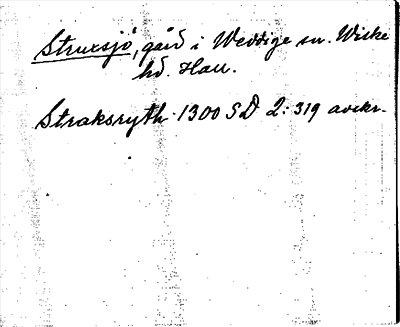 Struxsjö, gård i Weddige sn. Wiske
hd. Hall.
Straksryth 1300 SD 2:319 avskr.